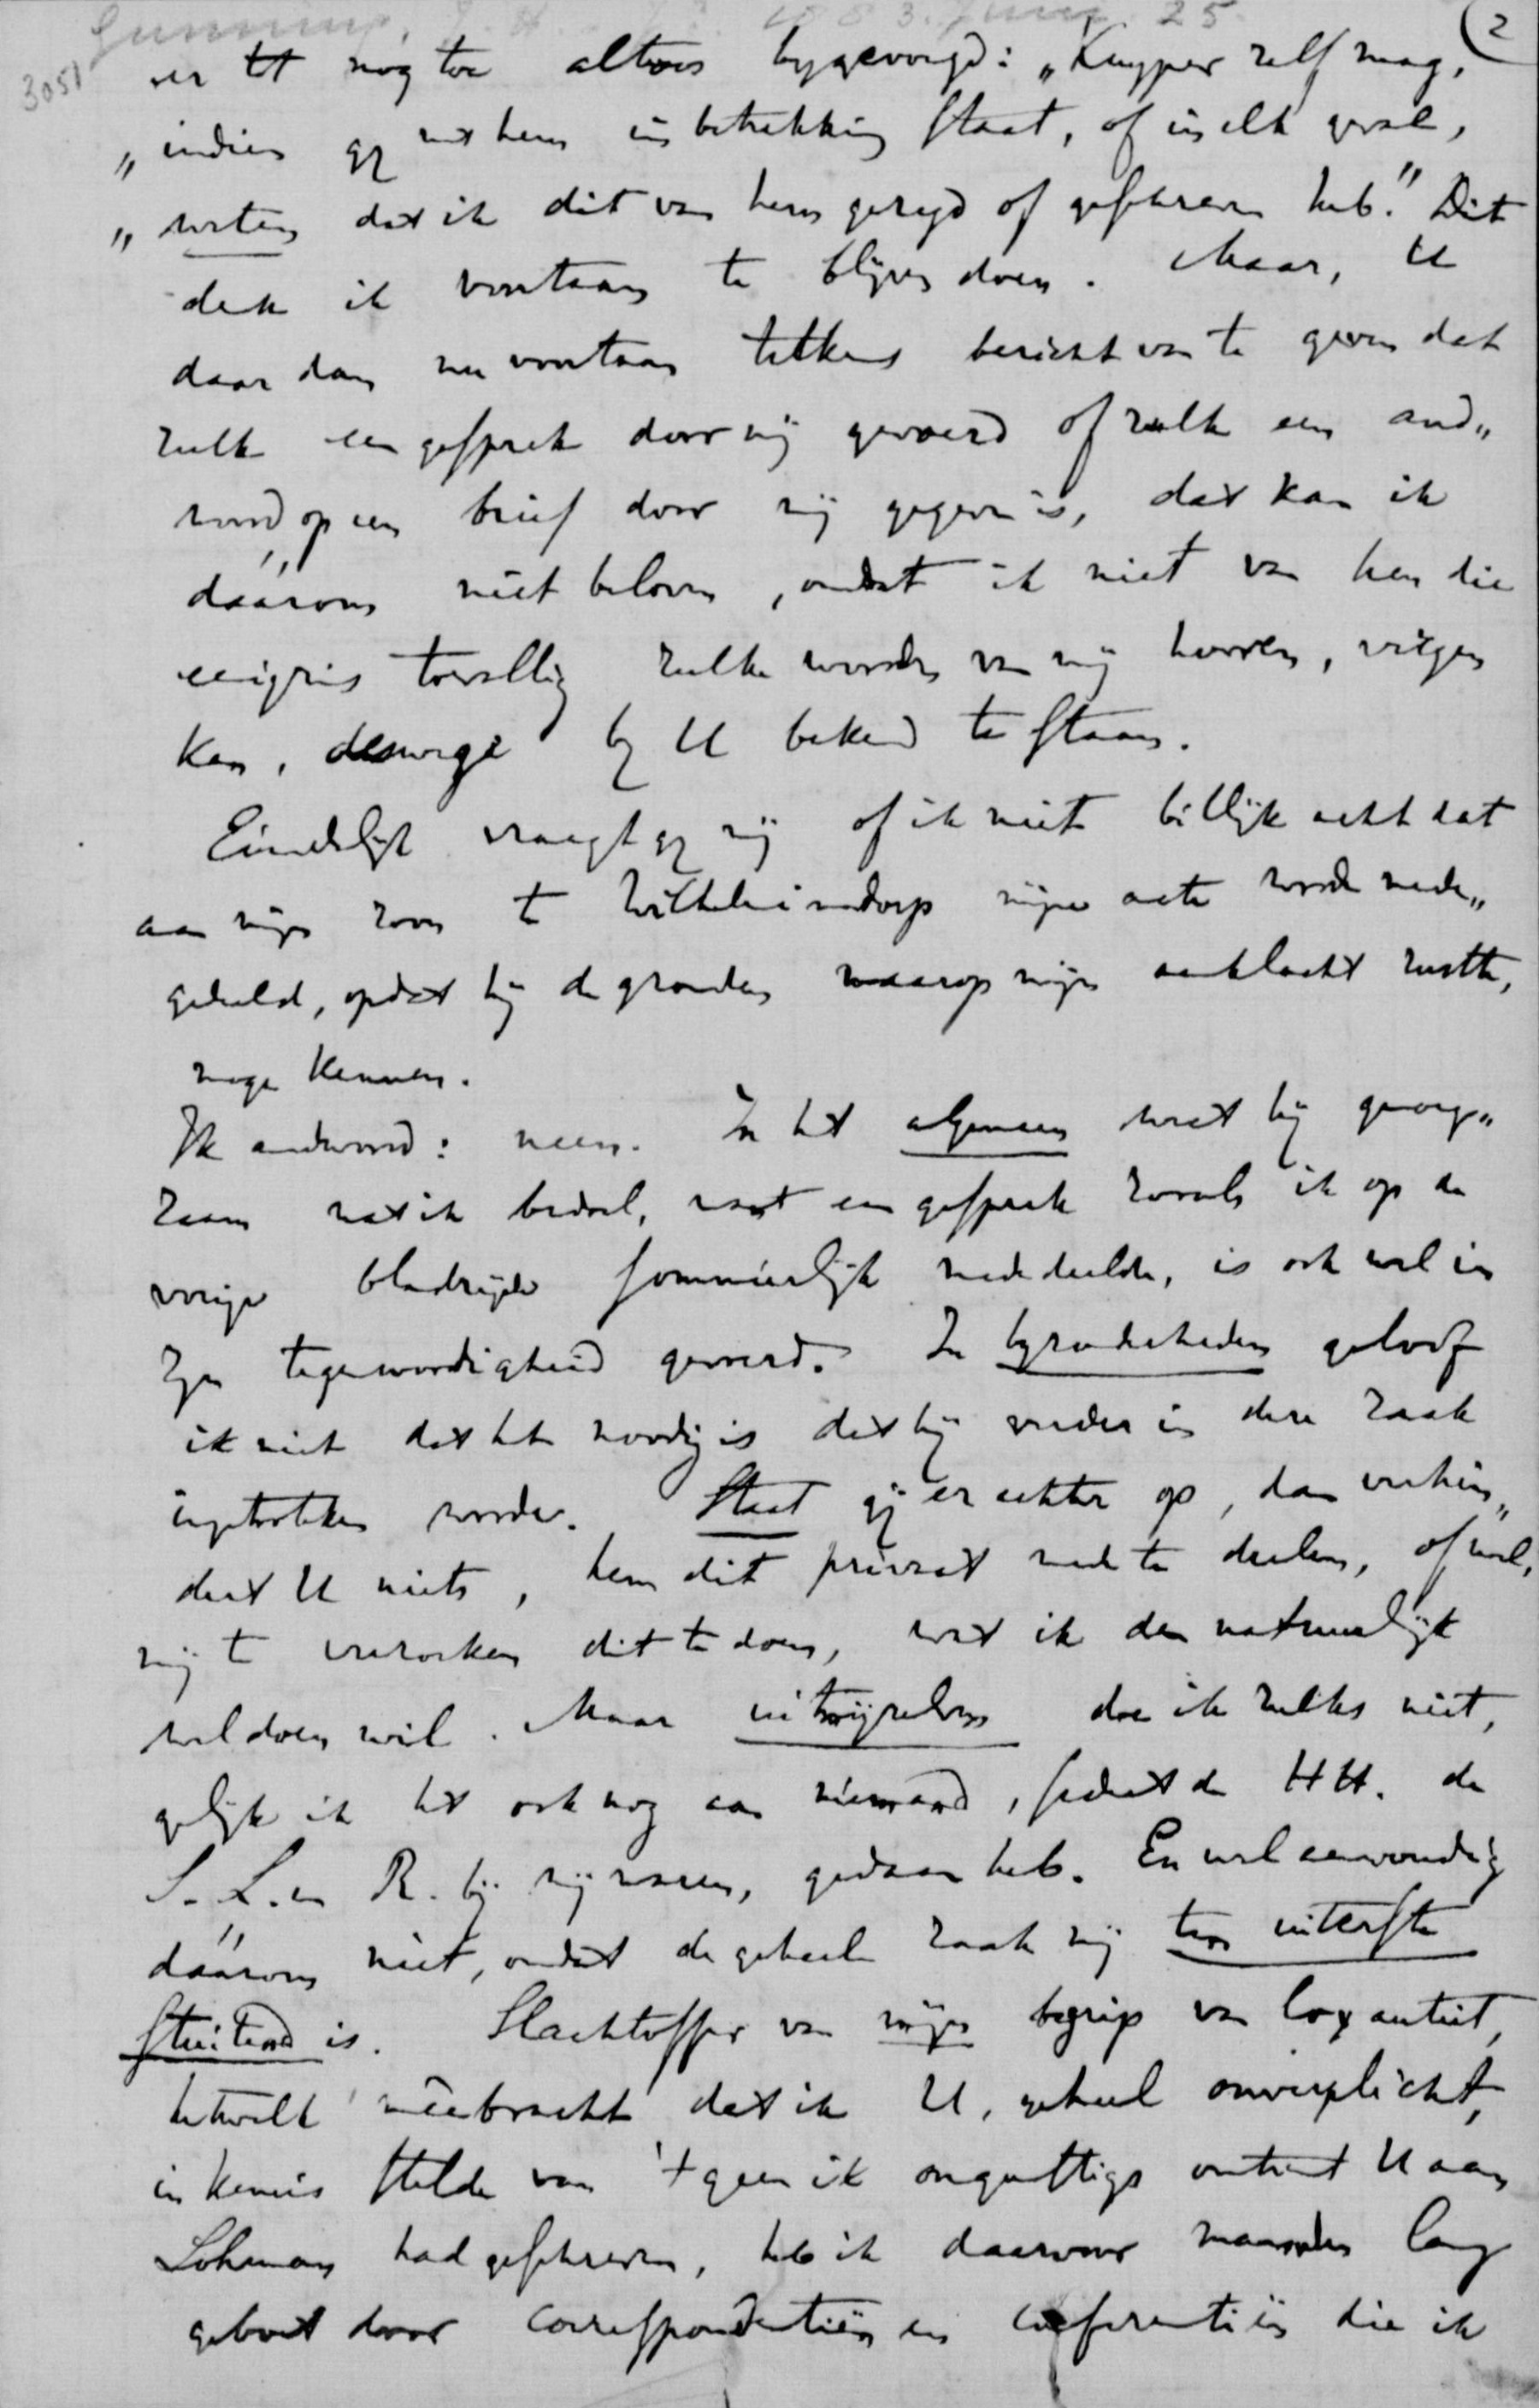 Gunning, J. H. 1883. Juny 25
(2
3051
er tot nog toe altoos bygevoegd: „Kuyper zelf mag,
„indien gy met hem in betrekking staat, of in elk geval,
„weten dat ik dit van hem gezegd of geschreven heb." Dit
denk ik voortaan te blijven doen. Maar, U
daar dan nu voortaan telkens bericht van te geven dat
zulk een gesprek door mij gevoerd of zulk een ant„
woord op een brief door mij gegeven is, dat kan ik
dáárom niet beloven, omdat ik niet van hen die
eenigzins toevallig zulke woorden van mij hooren, vergen
kan, deswege by U bekend te staan.
Eindelijk vraagt gy mij of ik niet billijk acht dat
aan mijn zoon te Wilhelminadorp mijne acte worde mede„
gedeeld, opdat hij de gronden waarop mijn aanklacht rustte,
moge kennen.
Ik andwoord: neen. In het algemeen weet hij genoeg„
zaam wat ik bedoel, want een gesprek zooals ik op de
vorige bladzijde sommierlijk mededeelde, is ook wel in
zyn tegenwoordigheid gevoerd. In byzonderheden geloof
ik niet dat het noodig is dat hij verder in deze zaak
ingetrokken worde. Staat gij er echter op, dan verhin„
dert U niets, hem dit privaat mede te deelen, of wel,
mij te verzoeken dit te doen, wat ik dan natuurlijk
wel doen wil. Maar uit mijzelven doe ik zulks niet,
gelijk ik het ook nog aan niemand, sedert de HH. de
S. L. en R. bij mij waren, gedaan heb. En wel eenvoudig
dáárom niet, omdat de geheele zaak mij ten uiterste
stuitend is. Slachtoffer van mijn begrip van loyauteit,
hetwelk meebracht dat ik U, geheel onverplicht,
in kennis stelde van 't geen ik ongunstigs omtrent U aan
Lohman had geschreven, heb ik daarvoor maanden lang
geboet door correspondentiën en conferentiën die ik